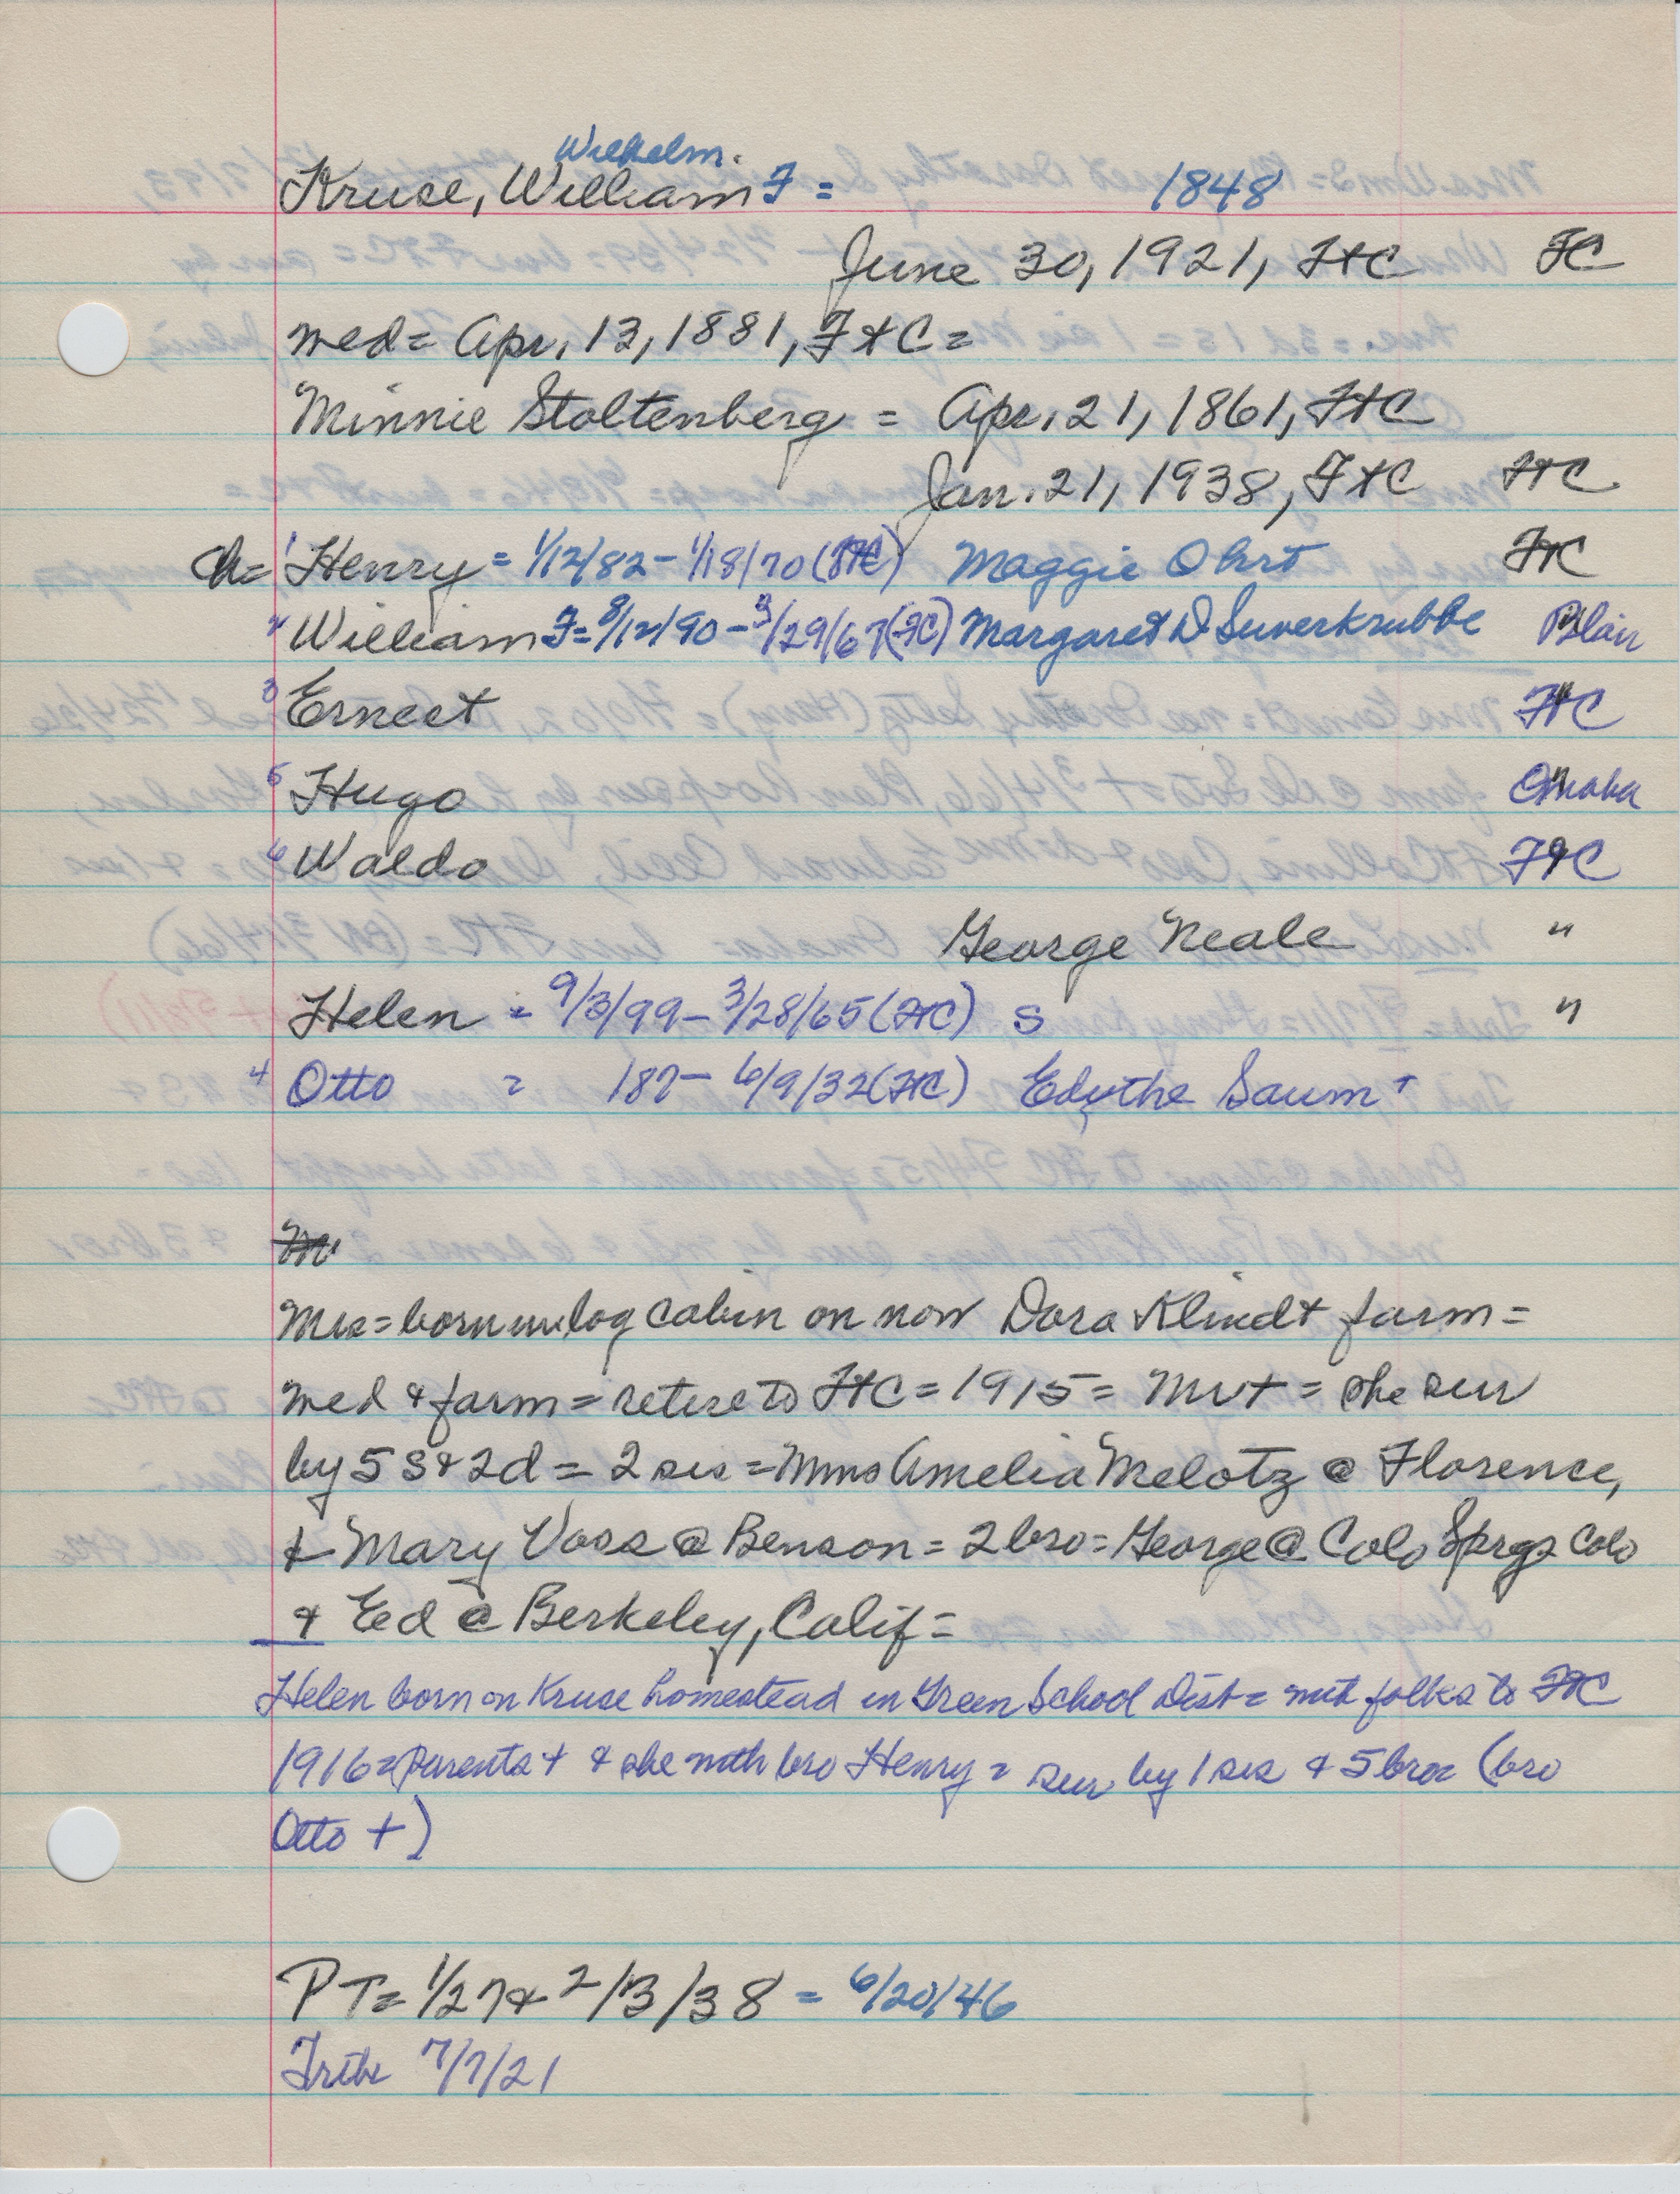 Wilhelm.
Kruse, William F = 1848
June 30, 1921, FtC FC
med = Apr. 13, 1881, FtC =
Minnie Stoltenberg = Apr. 21, 1861, FtC
Jan. 21, 1938, FtC FtC
Ch = 1 Henry = 1/12/82 - 1/18/70 (FtC) Maggie Ohrt FtC
2 William F = 8/12/90 - 3/29/67 (FC) Margaret D Suverkrubbe Blair
3 Ernest FtC
5 Hugo Omaha
6 Waldo FtC
George Neale "
Helen = 9/3/99 - 3/28/65 (FtC) S "
4 Otto = 187- 6/9/32 (FtC) Edythe Saum +
Mrs = born in log cabin on now Dora Klindt farm =
med & farm = retire to FtC = 1915 = Mr + = she sur
by 5 S & 2 d = 2 sis = Mmes Amelia Melotz @ Florence,
& Mary Voss @ Benson = 2 bro = George @ Colo Sprgs Colo
& Ed @ Berkeley, Calif =
Helen born on Kruse homestead in Green School Dist = with folks to FtC
1916 = Parents + & she with bro Henry = sur by 1 sis & 5 bro (bro
Otto +)
PT = 1/27 & 2/3/38 = 6/20/46
Trib 7/7/21